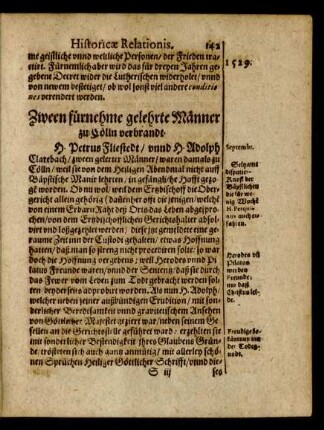 Historicæ Relationis. 142
me geistliche vnnd weltliche Personen/ der Frieden tra-
ctirt. Fürnemlich aber wird das für dreyen Jahren ge-
gebene Decret wider die Lutherischen widerholet/ vnnd
von newem bestetiget/ ob wol sonst viel andere conditio-
nes verendert werden.
Zween fürnehme gelehrte Männer
zu Cölln verbrandt.
H. Petrus Fliestedt/ vnnd H. Adolph
Clarebach/ zween gelerter Männer/ waren damals zu
Cölln/ weil sie von dem Heiligen Abendmal nicht auff
Bäpstische Manir lehrten/ in gefängliche Hafft gezo-
gen worden. Ob nu wol/ weil dem Ertzbischoff die Ober-
gericht allein gehörig/ dahenher offt die jenigen/ welche
von einem Erbarn Raht des Orts das Leben abgespro-
chen/ von dem Ertzbischofflichen Gerichtshalter absol-
virt vnd loßgezehlet werden/ diese jtzt gemeldete eine ge-
raume Zeit in der Custodi gehalten/ etwas Hoffnung
hatten/ daß man so streng nicht procediren solte: so war
doch die Hoffnung vergebens/ weil Herodes vnd Pi-
latus Freunde waren/ vnnd der Sentenz/ daß sie durch
das Fewer vom Leben zum Todt gebracht werden sol-
ten/ beyderseits approbirt worden. Als nun H. Adolph/
welcher neben seiner außbündigen Erudition/ mit son-
derlicher Beredsamkeit vnnd gravitetischem Ansehen
von Göttlicher Majestet gezieret war/ neben seinem Ge-
sellen an die Gerichtsstelle geführet ward: erzehlten sie
mit sonderlicher Bestendigkeit jhres Glaubens Grün-
de/ trösteten sich auch gantz anmütig/ mit allerley schö-
nen Sprüchen Heiliger Göttlicher Schrifft/ vnnd die-
S iij
ses
1529.
Septembr.
Seltzame
Herodes vñ
Pilatus
werden
Freunde/
nur daß
Christus lei-
de.
Frewdige Be-
käntnuß mit
der Todes-
noth.